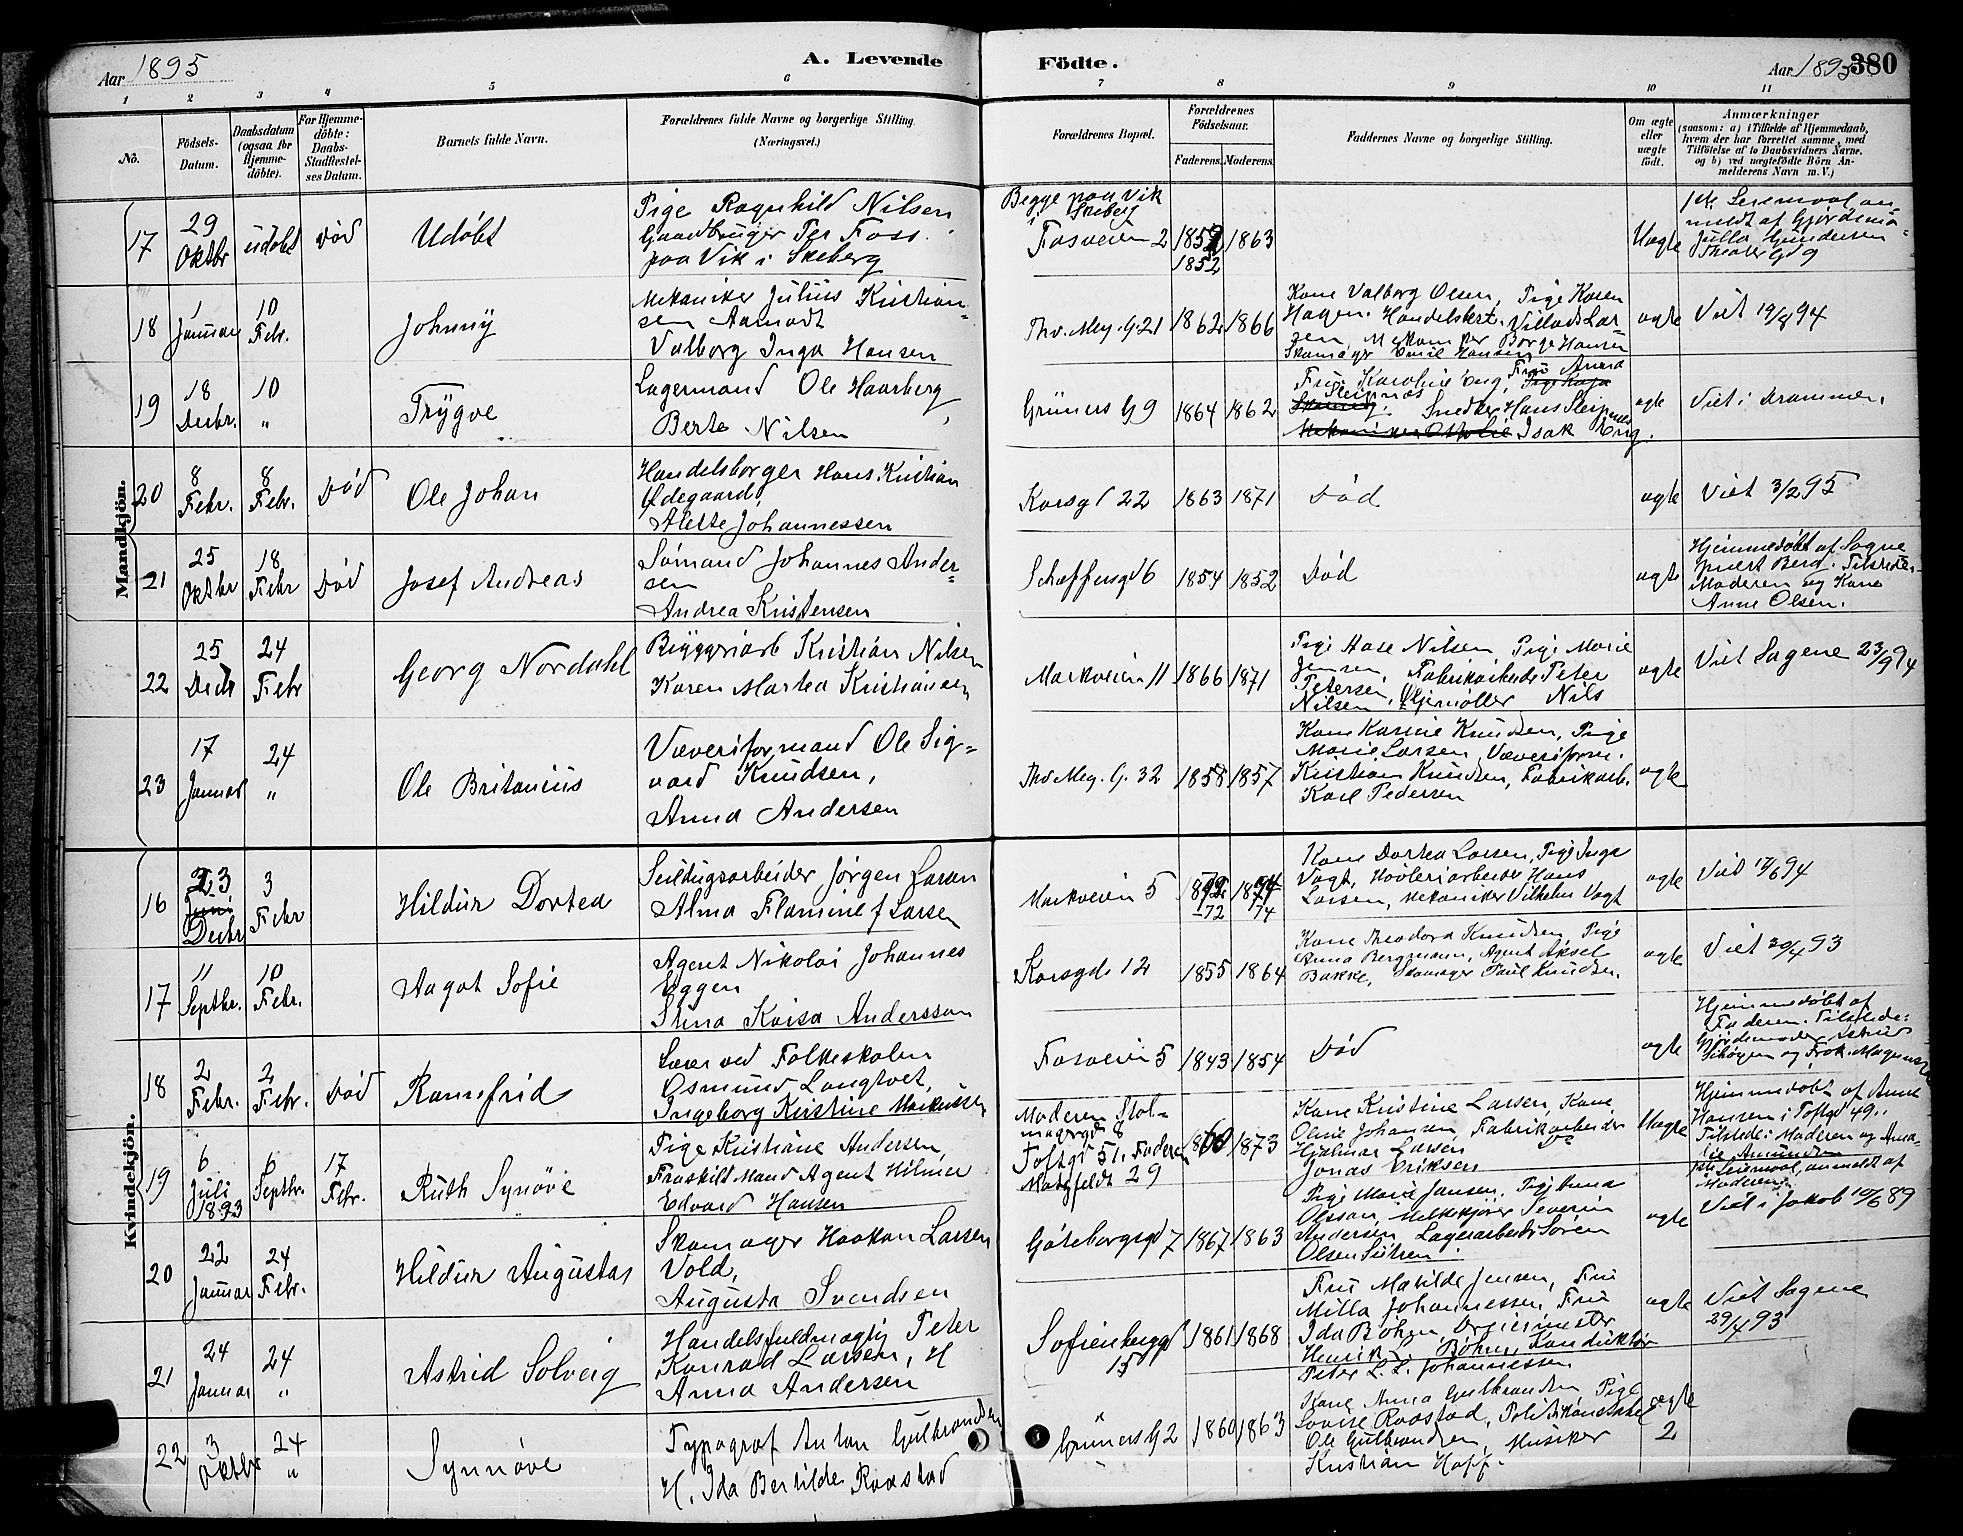 Aar 1895
A. Levende Födte.
Aar 1895
380
1 2 3 4 5 6 7 8 9 10 11
No.
Födsels-
Datum.
Daabsdatum
(ogsaa for
Hjemme-
döbte).
For Hjemme-
döbte:
Daabs-
Stadfæstel-
ses Datum.
Barnets fulde Navn.
Forældrenes fulde Navne og borgerlige Stilling.
(Næringsvei.)
Forældrenes Bopæl.
Forældrenes
Födselsaar.
Faderens. Moderens.
Faddernes Navne og borgerlige Stilling.
Om ægte
eller
uægte
født.
Anmærkninger
(saasom: a) i Tilfælde af Hjemmedaab,
hvem der har forrettet samme, med
Tilföielse af to Daabsvidners Navne.
og b) ved uægtefödte Börn An-
melderens Navn m. V.)
Mandkjön.
17
29
Oktbr
udøbt
Død
Udøbt
Pige Ragnhild Nilsen
Gaardbruger Per Foss
paa Vik i Skeberg
Begge paa Vik
Skeberg
Fosveien 2
1852
1863
Uagte
1ste Leiermaal an-
meldt af Gjordemo-
Julla Gundersen
Theater Gd 9
18
1
Januar
10
Febr.
Johnny
Mekaniker Julius Kristian-
sen Aamodt
Valborg Inga Hansen
Thv. Mey. G. 21
1862
1866
Kone Valborg Olsen, Pige Karen
Hagen. Handelsbest. Villads Lar-
sen, Mekaniker Borge Hansen
Skomager Emil Hansen
ægte
Viet 19/8 94
19
18
Decbr.
10
"
Trygve
Lagermand Ole Haarberg,
Berte Nilsen
Grüners G 9
1864
1862
Frue Karoline Eng, Frue Anna
Sleipnæs. Snedker Hans Sleipnæs
Isak Eng.
ægte
Viet i Drammen.
20
8
Febr.
8
Febr.
Død
Ole Johan
Handelsborger Hans Kristian
Ødegaard,
Alette Johannessen
Korsgd 22
1863
1871
Død
ægte
Viet 3/2 95
21
25
Oktbr
18
Febr
Død
Josef Andreas
Sømand Johannes Ander-
sen
Andrea Kristensen
Schæffersgd 6
1854
1852
Død
ægte
Hjemmedøbt af Sogne
prest Berg. Tilstede:
Moderen og Kone
Anne Olsen.
22
25
Decbr
24
Febr
Georg Nordahl
Bryggeriarb Kristian Nilsen
Karen Martea Kristiansen
Markveien 11
1866
1871
Pige Hase Nilsen Pige Marie
Jensen, Fabrikarbeider Peter
Petersen, Oljemøller Nils
Nilsen
ægte
Viet Sagene 23/9 94
23
17
Januar
24
"
Ole Britanius
Væveriformand Ole Sig-
vard Knudsen,
Anna Andersen
Thv Mey. G. 32
1858
1857
Kone Karine Knudsen, Pige
Marie Larsen Væveriform.
Kristian Knudsen, Fabrikarb.
Karl Pedersen
ægte
Kvindekjön.
16
23
Decbr
3
Febr
Hildur Dortea
Seildugsarbeider Jørgen Larsen
Alma Flamine f Larsen
Markveien 5
1872
-72
1874
74
Kone Dortea Larsen, Pige Inga
Vogt, Høvleriarbeider Hans
Larsen, Mekaniker Vilhelm Vogt
ægte
17
11
Septbr.
10
Febr.
Aagot Sofie
Agent Nikolai Johannes
Eggen
Stina Kaisa Andersson
Korsgd 12
1855
1864
Kone Theodora Knudsen, Pige
Anna Bergmann, Agent Aksel
Bakke, Skomager Paul Knudsen.
ægte
18
2
Febr.
2
Febr.
Død
Ramfrid
Lærer ved Folkeskolen
Osmund Langtvet,
Ingeborg Kirstine Markussen
Fosveien 5
1843
1854
Død
ægte
Hjemmedøbt af
Faderen. Tilstede:
Gjordemoder Astrid
19
6
Juli
1893
6
Septbr.
17
Febr.
Ruth Synøve
Pige Kristiane Andersen,
Fraskilt Mand Agent Hilmar
Edvard Hansen
Moderen Stol-
magergd 8
Toftgd 51. Faderen
29
1860
1873
Kone Kristine Larsen, Kone
Oline Johansen, Fabrikarbeider
Hjalmar Larsen
Jonas Eriksen
Uagte
Hjemmedøbt af Anne
Hansen i Toftgd 49.
Tilstede: Moderen og Ama-
lie Amundsen
Leiermaal, anmeldt af
Moderen.
20
22
Januar
24
Febr.
Hildur Augusta
Skomager Haakon Larsen
Vold,
Augusta Svendsen
Göteborgsgd 7
1867
1863
Pige Marie Jansen, Pige
Olsson, Melkekjører Severin
Andersen Lagerarbeider Søren
Olsen
ægte
Viet i Jakob 10/6 89
21
24
Januar
24
"
Astrid Solveig
Handelsfuldmægtig Peter
Konrad Larsen, H
Anna Andersen
Sofienberggd
15
1861
1868
Frue Matilde Jensen, Frue
Milla Johannessen, Frue
Ida Bøhn, Dreiermester
Henrik L. Bøhn, Konduktør
Peter L. L. Johannessen
ægte
Viet Sagene
29/4 93
22
3
Oktbr
24
"
Synnøve
Typograf Anton Gulbrandsen
H. Ida Bertilde Raastad
Grüners G 2
1860
1863
Kone Anna Gulbrandsen, Pige
Lovise Raastad, Politikonstabel
Ole Gulbrandsen, Musiker
Kristian Hoff.
ægte
2